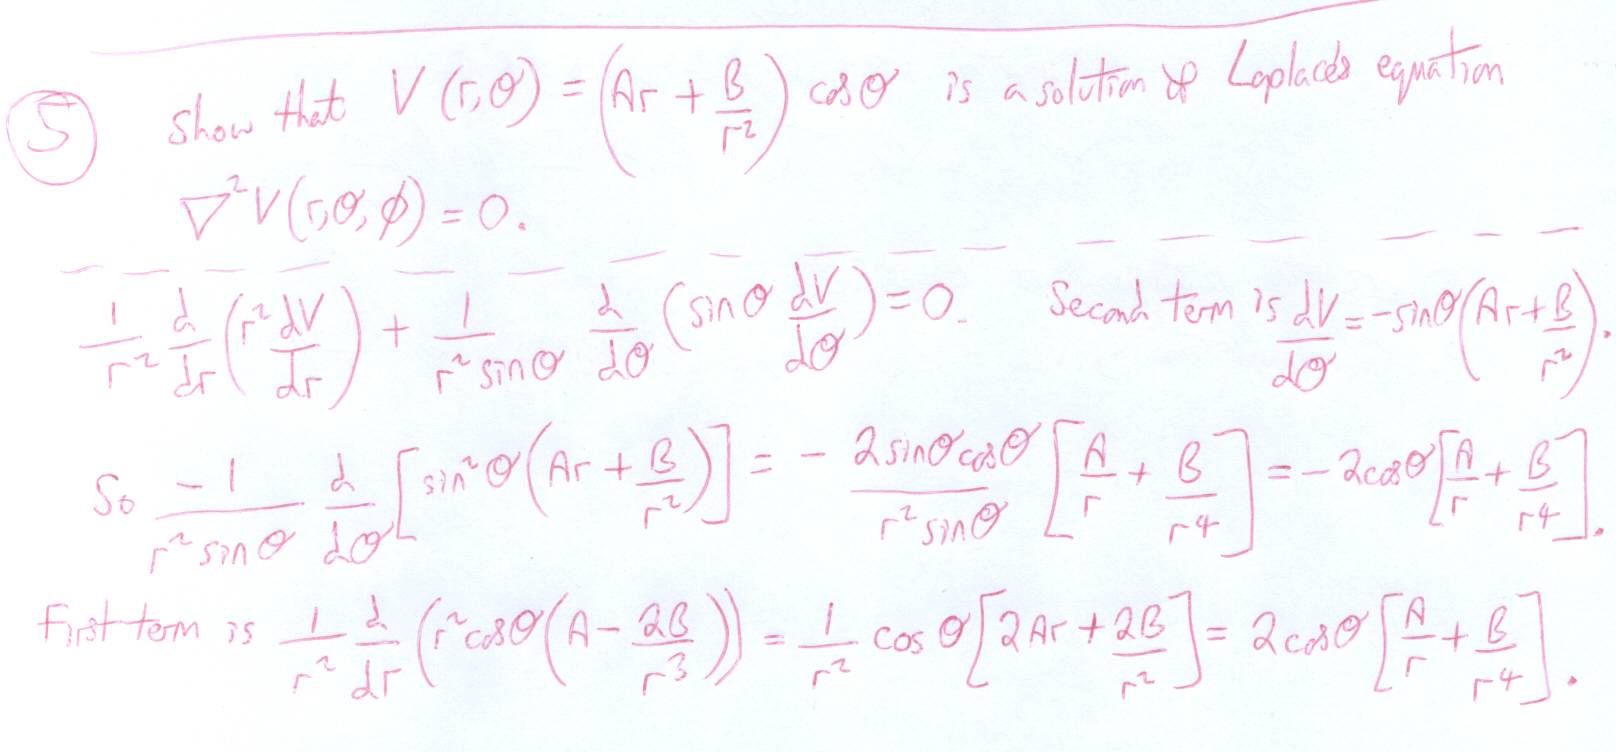 ⑤ Show that V(r,θ) = (Ar + B/r²) cosθ is a solution of Laplace's equation
∇²V(r,θ,φ) = 0.
1/r² d/dr (r² dV/dr) + 1/(r² sinθ) d/dθ (sinθ dV/dθ) = 0. Second term is dV/dθ = -sinθ(Ar + B/r²).
So -1/(r² sinθ) d/dθ [sin²θ(Ar + B/r²)] = - 2sinθcosθ/(r² sinθ) [A/r + B/r⁴] = -2cosθ[A/r + B/r⁴].
First term is 1/r² d/dr (r²cosθ(A - 2B/r³)) = 1/r² cosθ[2Ar + 2B/r²] = 2cosθ[A/r + B/r⁴].